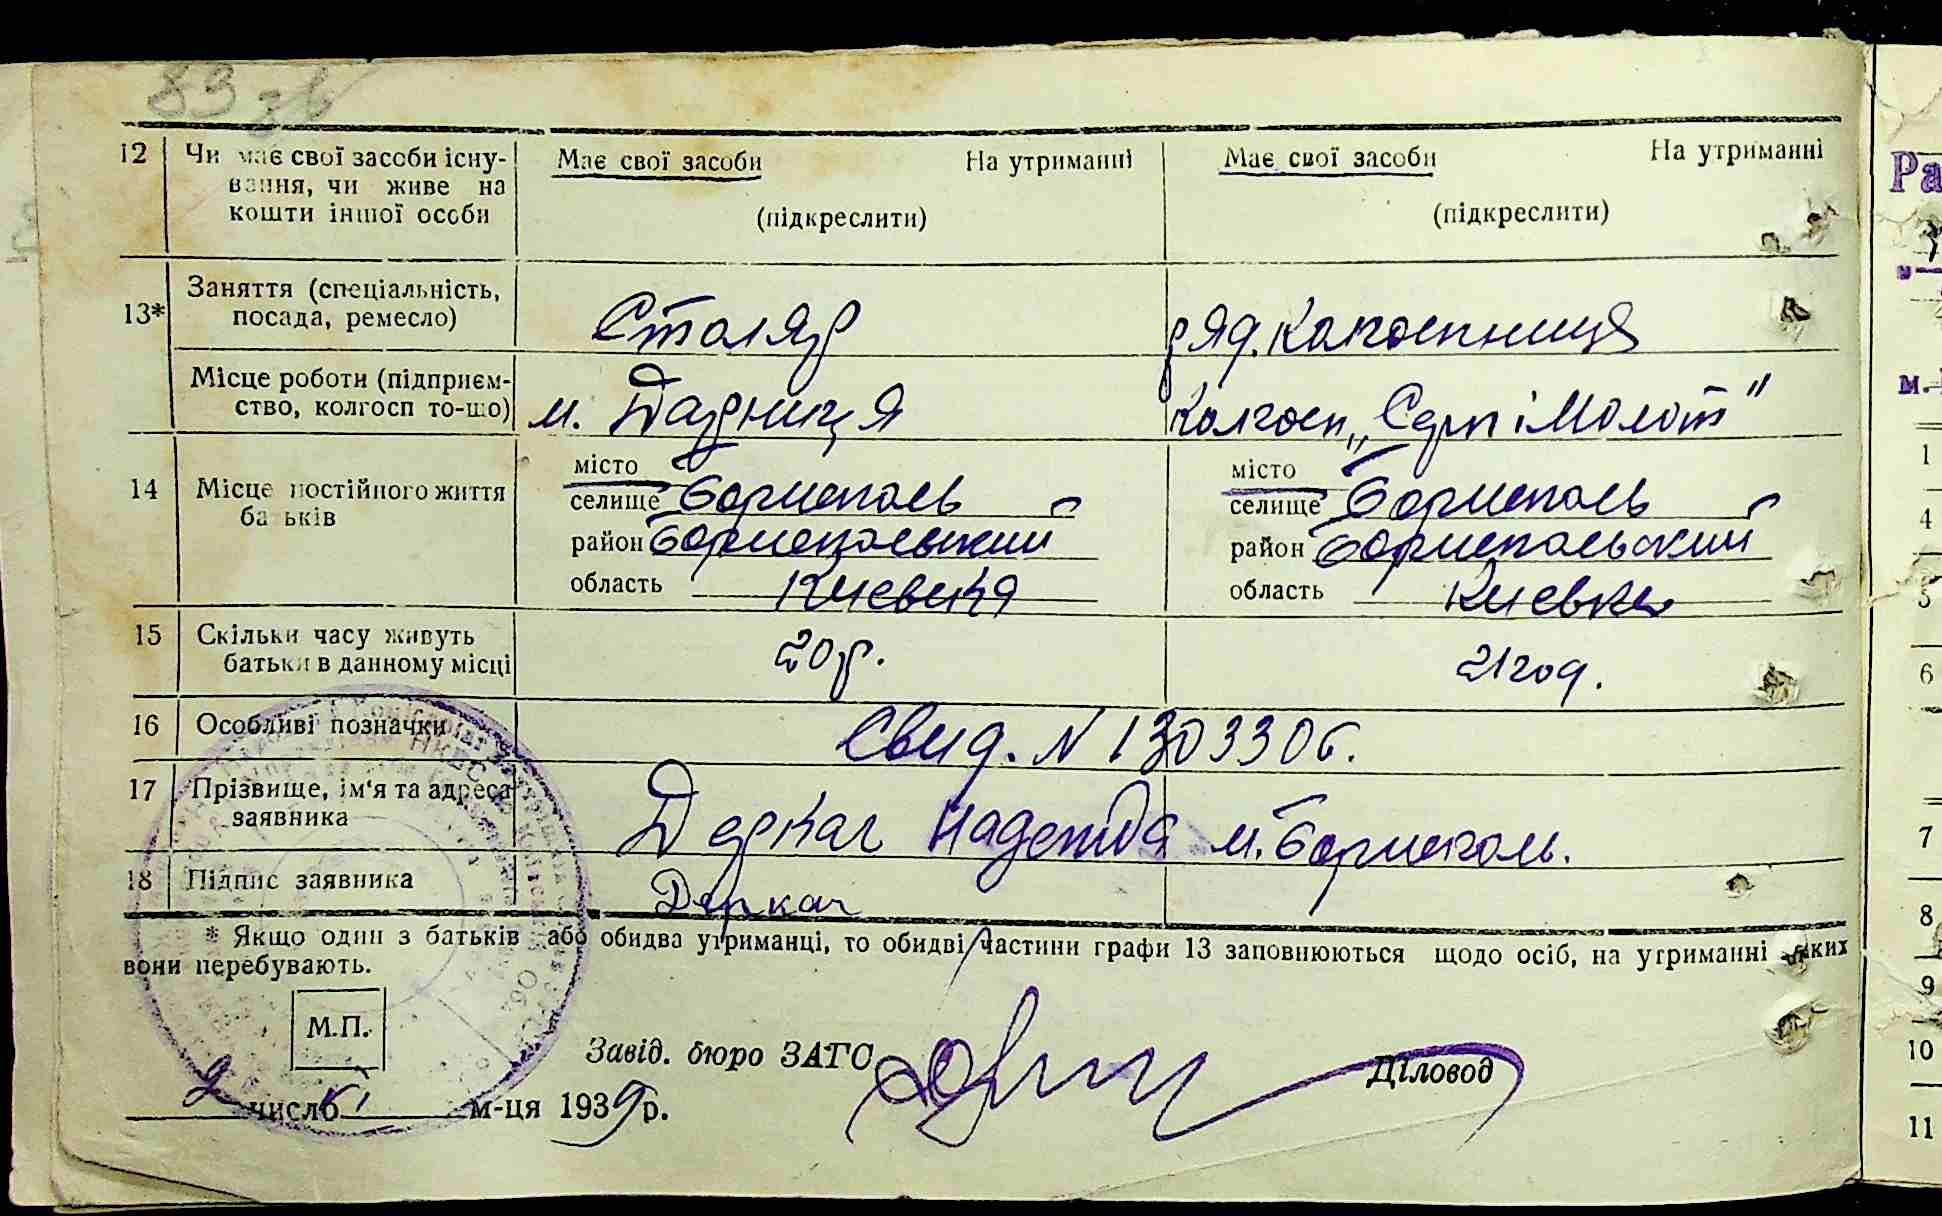 83 зв
12 Чи має свої засоби існу-
вання, чи живе на
кошти іншої особи
Має свої засоби На утриманні
(підкреслити)
Має свої засоби На утриманні
(підкреслити)
13* Заняття (спеціальність,
посада, ремесло)
Столяр
ряд. колгоспниця
Місце роботи (підприєм-
ство, колгосп то-що)
м. Дарниця
Колгосп „Серп і Молот"
14 Місце постійного життя
батьків
місто
селище Борисполь
район Бориспольский
область Киевска
місто
селище Бориспол​ь
район Бориспольский
область Киевска
15 Скільки часу живуть
батьки в данному місці
20 р.
21 год.
16 Особливі позначки
Свид. N 1303306.
17 Прізвище, ім'я та адреса
заявника
Деркач Надежда м. Бориспол​ь.
18 Підпис заявника
Деркач
* Якщо один з батьків або обидва утриманці, то обидві частини графи 13 заповнюються щодо осіб, на утриманні яких
вони перебувають.
М.П.
Завід. бюро ЗАГС
Діловод
9 число VI м-ця 1939 р.
Ра
м.
1
4
5
6
7
8
9
10
11